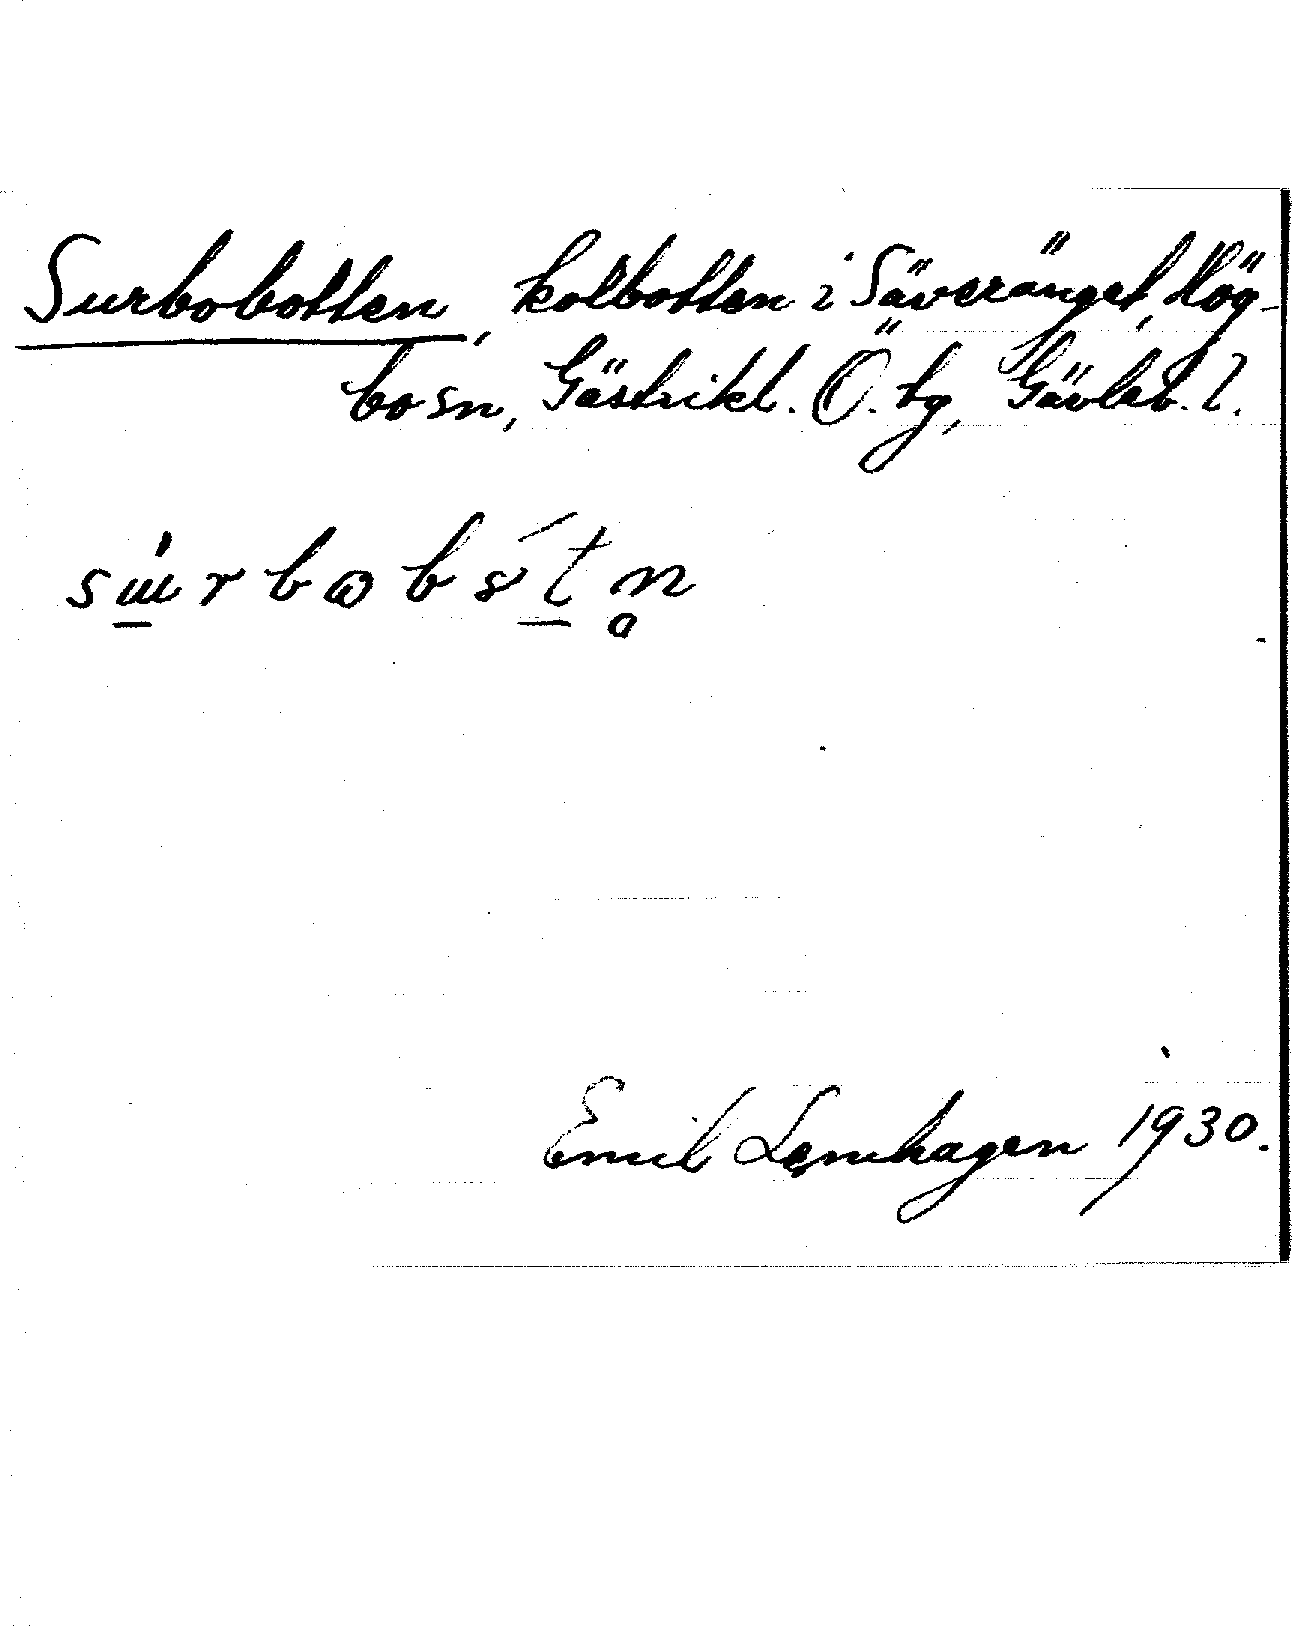 Surbobotten, kolbotten i Säveränget, Hög-
bo sn, Gästrikl. Ö. tg, Gävleb. l.
Emil Lennhagen 1930.